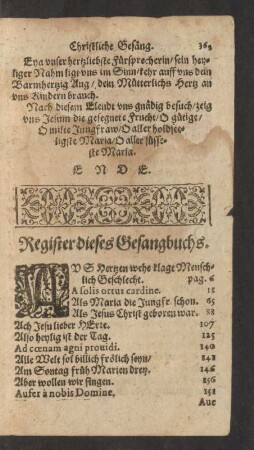 Christliche Gesäng. 363
Eya vnser hertzliebste Fürsprecherin / sein hey-
liger Nahm ligt vns im Sinn / kehr auff vns dein
Barmhertzig Aug / dein Mütterlichs Hertz an
vns Kindern brauch.
Nach diesem Elendt vns gnädig besuch / zeig
vns Jesum die gesegnete Frucht / O gütige /
O milte Jungfraw / O aller holdse-
ligste Maria / O aller süsse-
ste Maria.
E N D E.
Register dieses Gesangbuchs.
AVS Hertzen wehe klage Mensch-
lich Geschlecht. pag. 6
A solis ortus cardine. 15
Als Maria die Jungfr. schon. 65
Als Jesus Christ geboren war. 88
Ach Jesu lieber HErre. 107
Also heylig ist der Tag. 125
Ad cœnam agni prouidi. 140
Alle Welt sol billich frölich seyn / 141
Am Sontag früh Marien drey. 146
Aber wollen wir singen. 156
Aufer à nobis Domine, 151
Aue